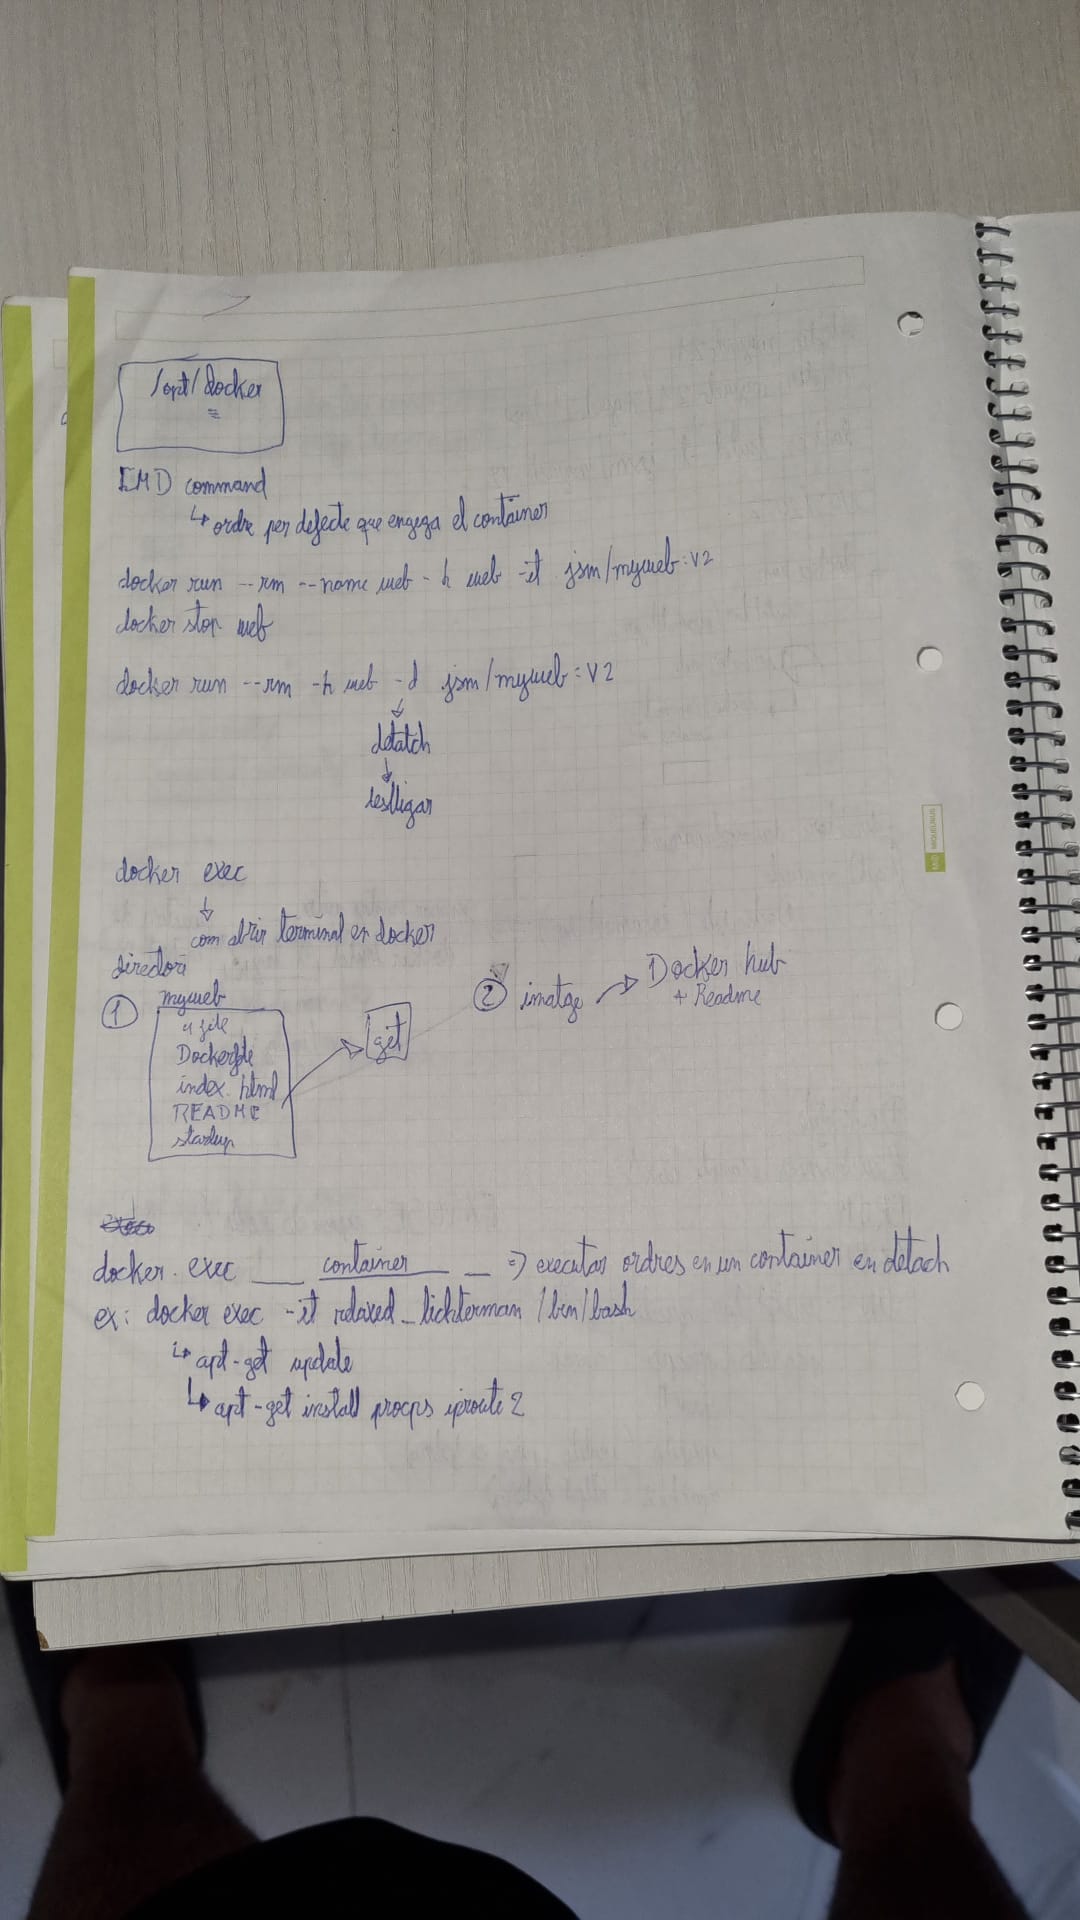 /opt/docker
CMD command
↳ ordre per defecte que engega el container
docker run --rm --name web -h web -it jsm/myweb:v2
docker stop web
docker run --rm -h web -d jsm/myweb:v2
detatch
deslligar
docker exec
com abrir terminal en docker
directori
① myweb
4 file
Dockerfile
index.html
README
startup
get
② imatge → Docker hub
+ Readme
docker exec ___ container _ => executas ordres en un container en detach
ex: docker exec -it relaxed_lichterman /bin/bash
↳ apt-get update
↳ apt-get install procps iproute2